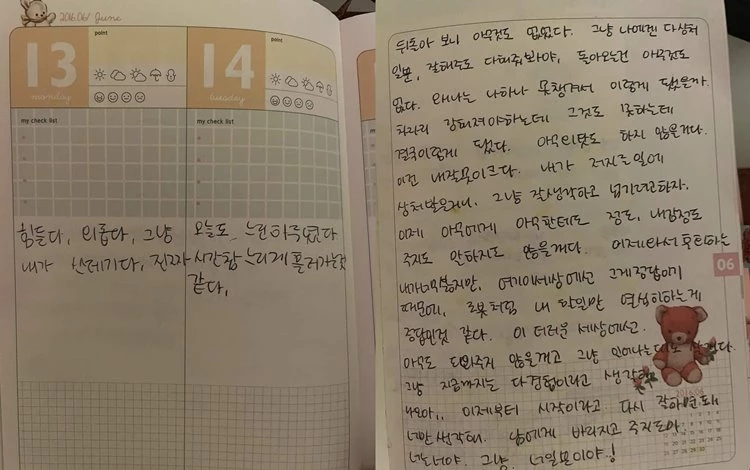 2016.06/ June
13
monday
point
my check list
14
tuesday
point
my check list
힘들다, 외롭다, 그냥
내가 쓰레기다, 진짜
오늘도 느린하루였다
시간참 느리게 흘러가는것
같다,
뒤돌아 보니 아무것도 없었다. 그냥 나에겐 다상처
일뿐, 잘해줘도 다해줘봐야, 돌아오는건 아무것도
없다. 왜나는 나하나 못챙겨서 이렇게 됐을까.
차라리 강해져야하는데 그것도 못하는데
결국이렇게 됐다. 아무리탓도 하지 않을거다.
이건 내잘못이크다. 내가 저지른일에
상처받은거니, 그냥 잘생각하고 넘기려고하자.
이제 아무에게 아무한테도 정도, 내감정도
주지도 말하지도 않을거다. 이제와서 후회하는
내가너무웃지만, 여기이세상에선 그게정답이기
때문에, 로봇처럼 내 할일만 열심히하는게
정답인것 같다. 이 더러운 세상에선.
아무도 도와주지 않을꺼고 그냥 일어나는
그냥 지금까지는 다경험이라고 생각
이제부터 시작이라고 다시 잘하면돼
너만생각해. 남에게 바라지고 주지도마.
너는너야. 그냥, 너일뿐이야!
06